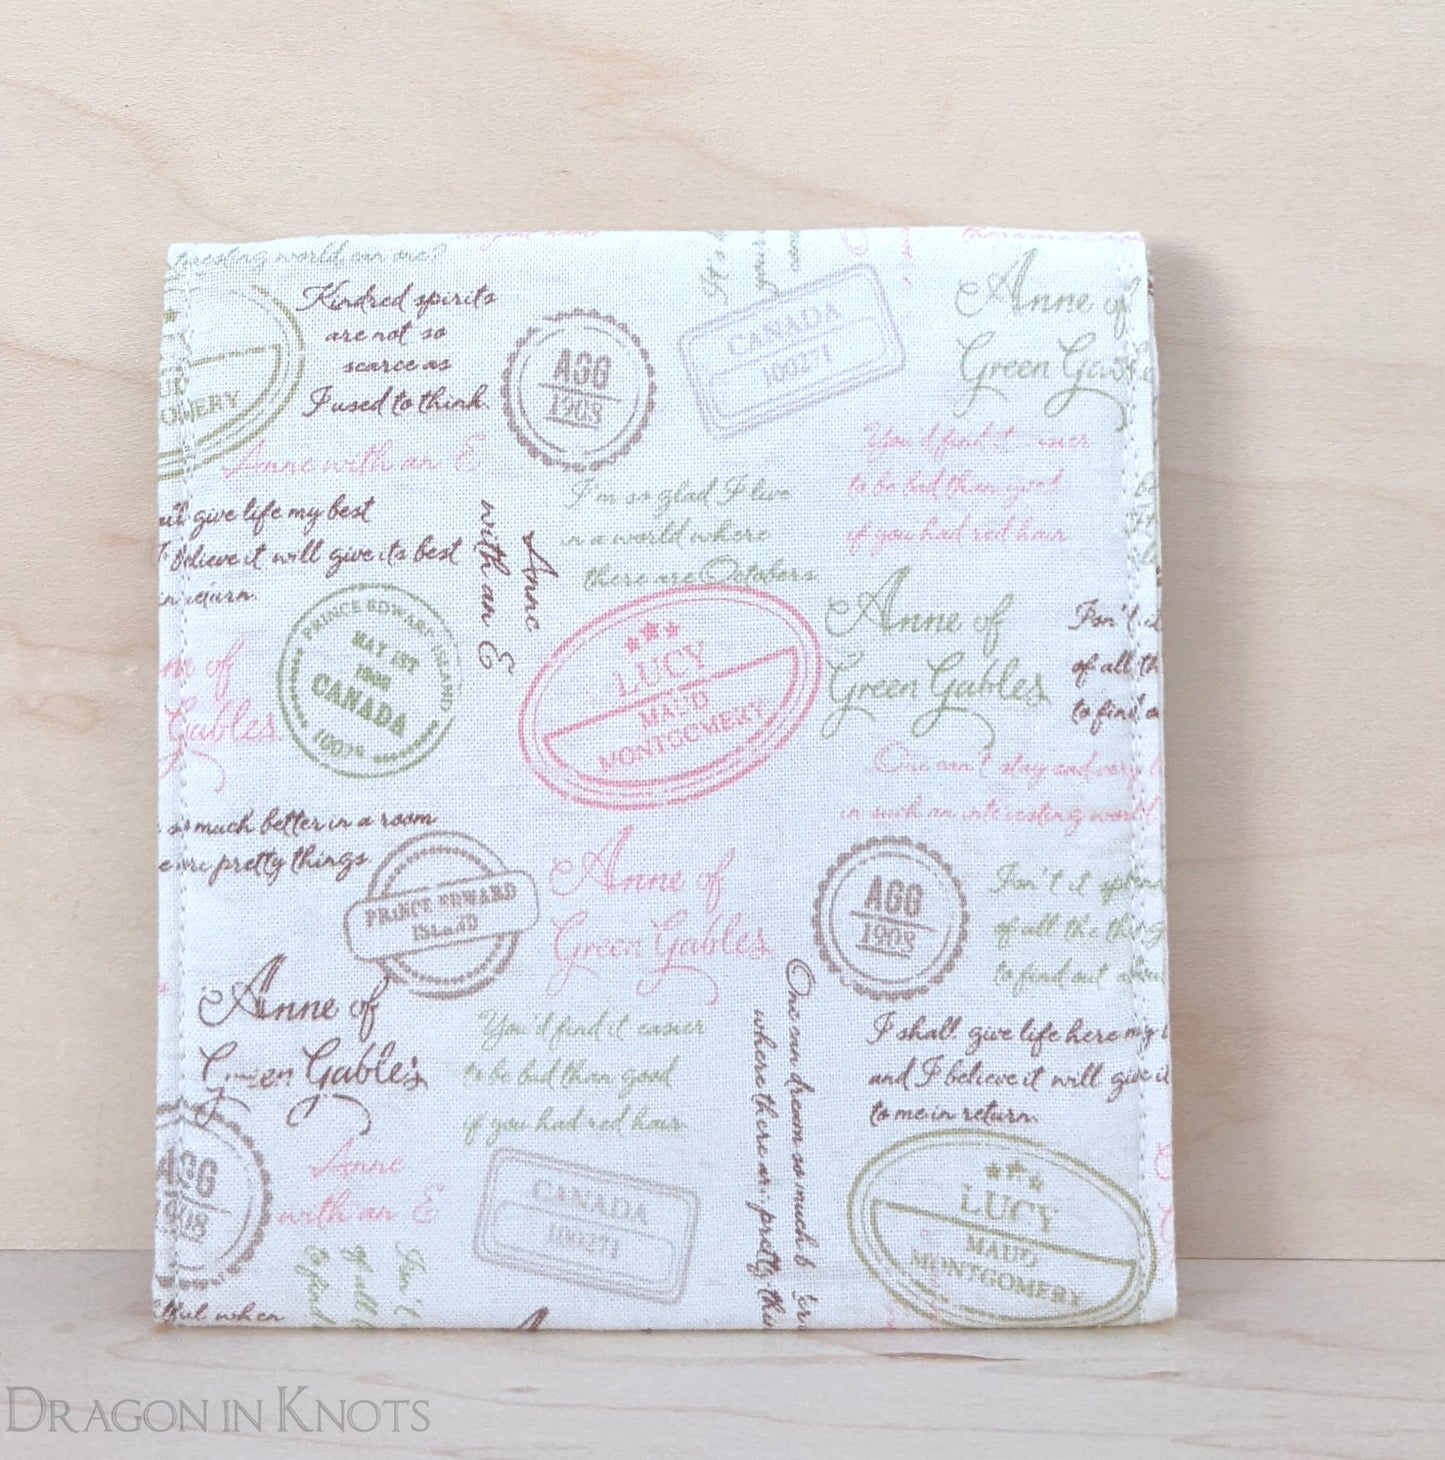 teresting world, can one?
Kindred spirits
are not so
scarce as
I used to think.
AGG
1908
CANADA
100271
Anne of
Green Gab
OMERY
Anne with an E
You'd find it easier
to be bad than good
if you had red hair
I'm so glad I live
in a world where
there are Octobers
give life my best
I believe it will give its best
in return.
Anne
with an E
PRINCE EDWARD ISLAND
MAY 1ST
1908
CANADA
100%
LUCY
MAUD
MONTGOMERY
Anne of
Green Gables
Isn't it
of all th
to find o
ne of
Gables
One can't stay sad very l
in such an interesting world
so much better in a room
e are pretty things
PRINCE EDWARD
ISLAND
Anne of
Green Gables
AGG
1908
Isn't it splen
of all the thing
to find out abou
Anne of
Green Gables
You'd find it easier
to be bad than good
if you had red hair
One can dream so much b
where there are pretty thin
I shall give life here my
and I believe it will give it
to me in return.
AGG
1908
Anne
with an E
CANADA
100271
LUCY
MAUD
MONTGOMERY
Isn't
of all
to find
tful when
DRAGON IN KNOTS